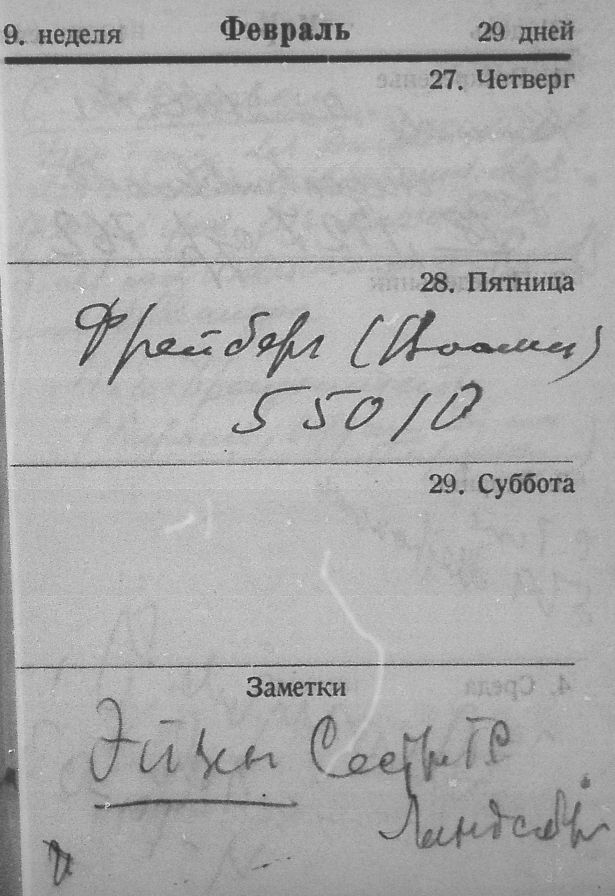 9. неделя Февраль 29 дней
27. Четверг
28. Пятница
Фрейберг
55010
29. Суббота
Заметки
Эйзен Сестре